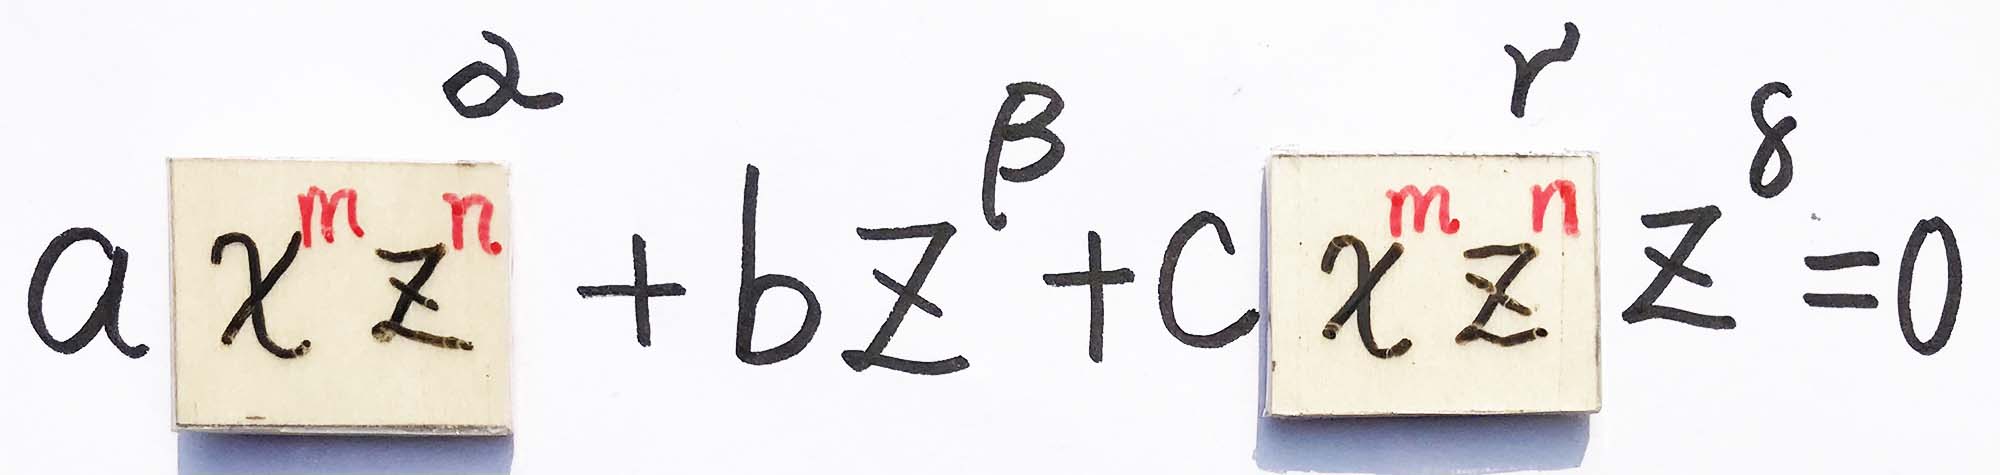 a x^m z^n ^α + b z^β + c x^m z^n ^γ z^δ = 0